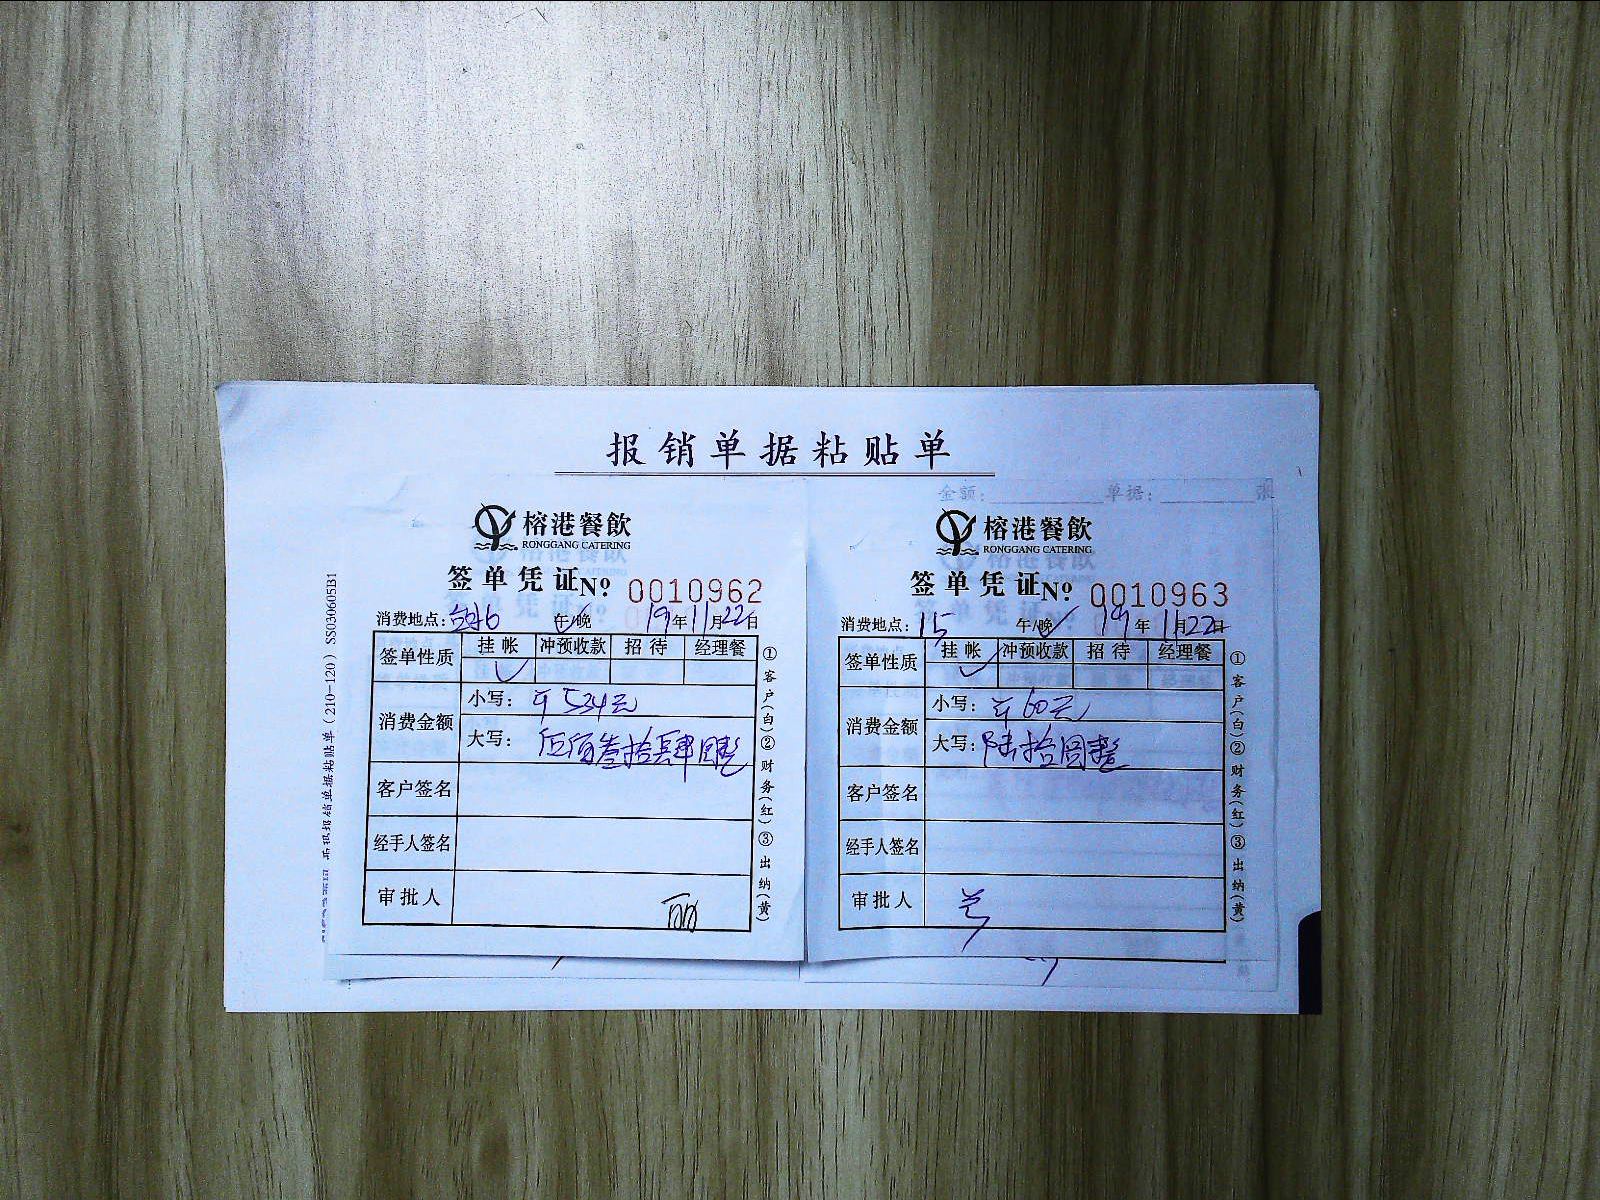 报销单据粘贴单
金额：
单据：
张
SS030605B1
报销单据粘贴单（210-120）
榕港餐飲
RONGGANG CATERING
签单凭证№ 0010962
消费地点：
午/晚 19年11月22日
签单性质
挂帐 冲预收款 招待 经理餐
消费金额
小写：￥534元
大写：伍佰叁拾肆圆整
客户签名
经手人签名
审批人
①客户（白）②财务（红）③出纳（黄）
榕港餐飲
RONGGANG CATERING
签单凭证№ 0010963
消费地点：15
午/晚 19年11月22日
签单性质
挂帐 冲预收款 招待 经理餐
消费金额
小写：￥60元
大写：陆拾圆整
客户签名
经手人签名
审批人
①客户（白）②财务（红）③出纳（黄）